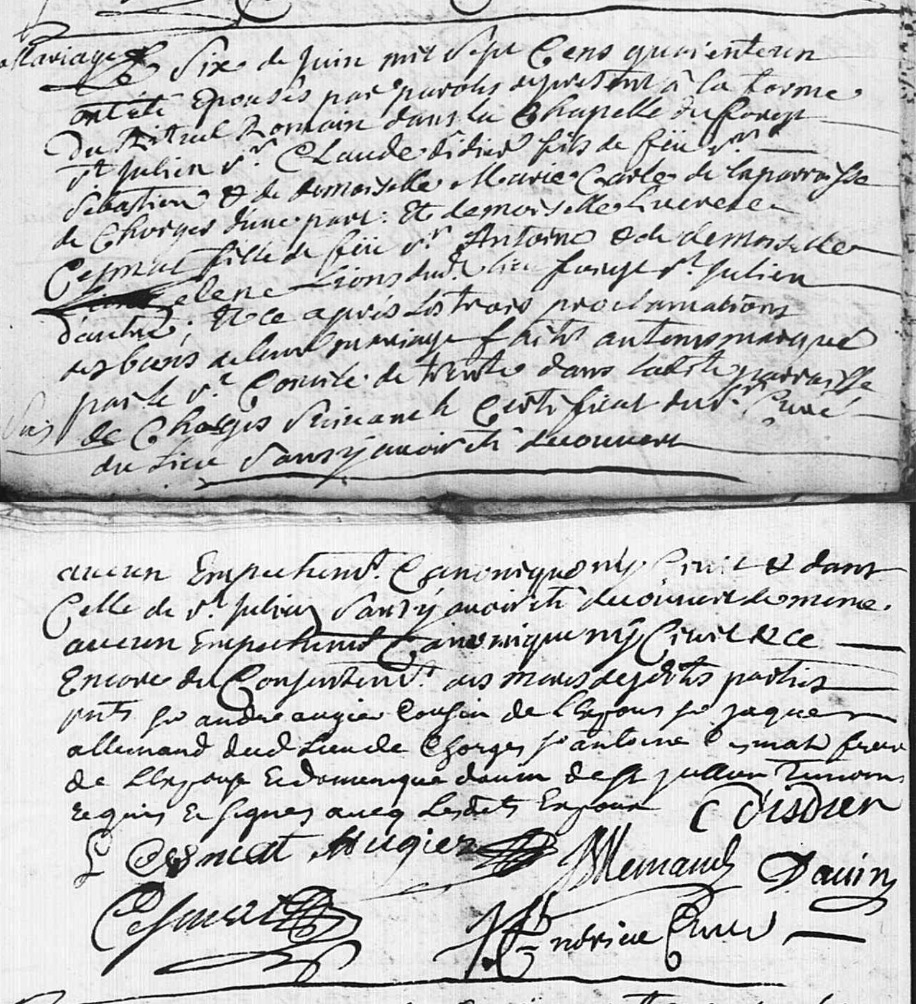 Mariage
Six de Juin mil sept Cens quarente un
ont été Epousés par parolis de present à la forme
Du Rituel Romain dans la Chapelle du forest
st Julien sr Claude Disdier fils de feu sr
Sebastien & de demoiselle Marie Carle de la parroisse
de Chorges d'une part: Et demoiselle Lucresse
Cesmat fille de feu sr Antoine & de demoiselle
elene Lions dud. lieu forest st Julien
d'autre; Et ce apres les trois proclamations
des bans de leur mariage faites au tems marqué
par le st Concile de trente dans ladite parroisse
de Chorges suivant le Certificat du sr Curé
du Lieu Sans y avoir été decouvert
aucun Empechemt. Canonique ny Civil & dans
Celle de st Julien Sans y avoir été decouvert de meme
aucun Empechemt Canonique ny Civil & ce
Encore du Consentemt. des meres desdites parties
pnts sr andre augier Cousin de l'Epous sr jaques
allemand dud Lieu de Chorges sr antoine Cesmat frere
de l'Epouse Et domenique davin de st jullien Temoins
requis Et signes avec Lesdits Epoux C Disdier
L Cesmat Augier Allemand Davin
Cesmat Curé